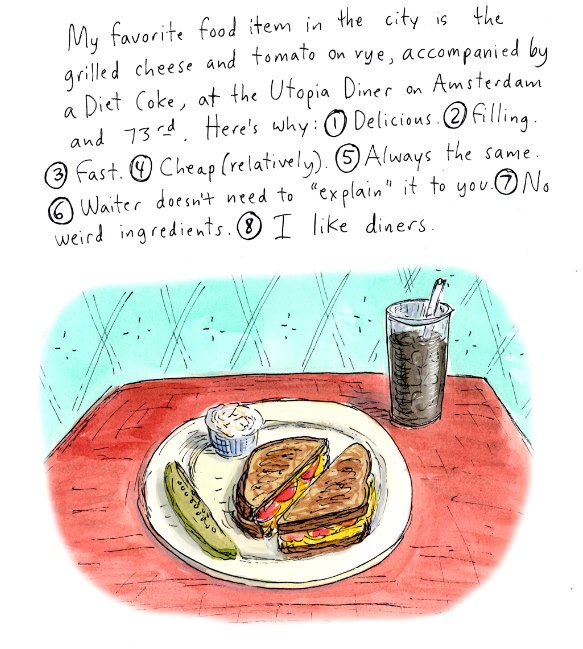 My favorite food item in the city is the
grilled cheese and tomato on rye, accompanied by
a Diet Coke, at the Utopia Diner on Amsterdam
and 73rd. Here's why: ① Delicious. ② Filling.
③ Fast. ④ Cheap (relatively). ⑤ Always the same.
⑥ Waiter doesn't need to "explain" it to you. ⑦ No
weird ingredients. ⑧ I like diners.